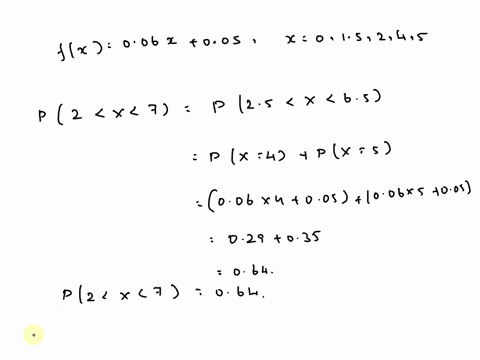 f(x) = 0.06x + 0.05, x = 0, 1.5, 2, 4, 5
P(2 < x < 7) = P(2.5 < x < 6.5)
= P(x = 4) + P(x = 5)
= (0.06 × 4 + 0.05) + (0.06 × 5 + 0.05)
= 0.29 + 0.35
= 0.64.
P(2 < x < 7) = 0.64.